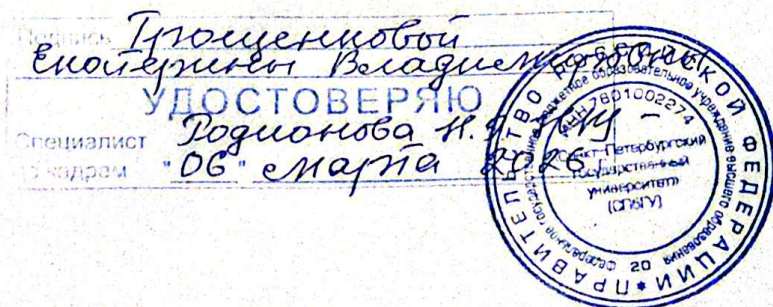 Подпись Трощенковой
Екатерины Владимировны
УДОСТОВЕРЯЮ
Специалист Родионова Н.
по кадрам "06" марта 2026
ПРАВИТЕЛЬСТВО РОССИЙСКОЙ ФЕДЕРАЦИИ *
федеральное государственное бюджетное образовательное учреждение высшего образования
ИНН 7801002274
Санкт-Петербургский
государственный
университет»
(СПбГУ)
20